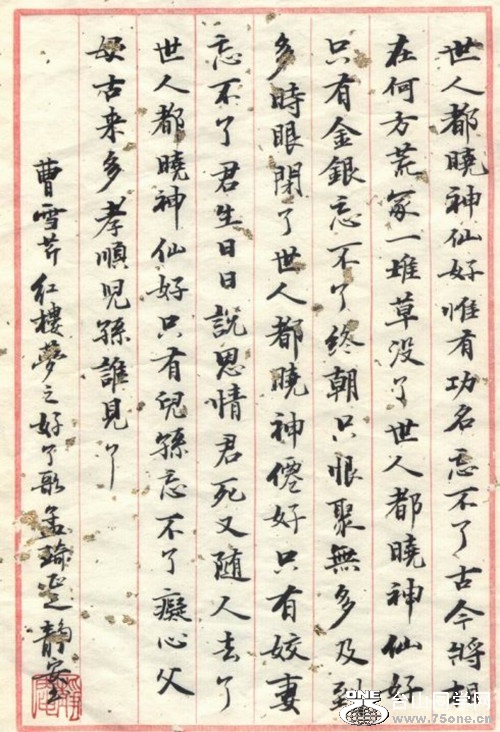 世人都曉神仙好惟有功名忘不了古今將相
在何方荒冢一堆草没了世人都曉神仙好
只有金銀忘不了終朝只恨聚無多及到
多時眼閉了世人都曉神僊好只有姣妻
忘不了君生日日説恩情君死又随人去了
世人都曉神仙好只有兒孫忘不了癡心父
母古来多孝順児孫誰見了
曹雪芹紅樓夢之好了歌孟瑜正之靜安
ONE
www.75one.cn